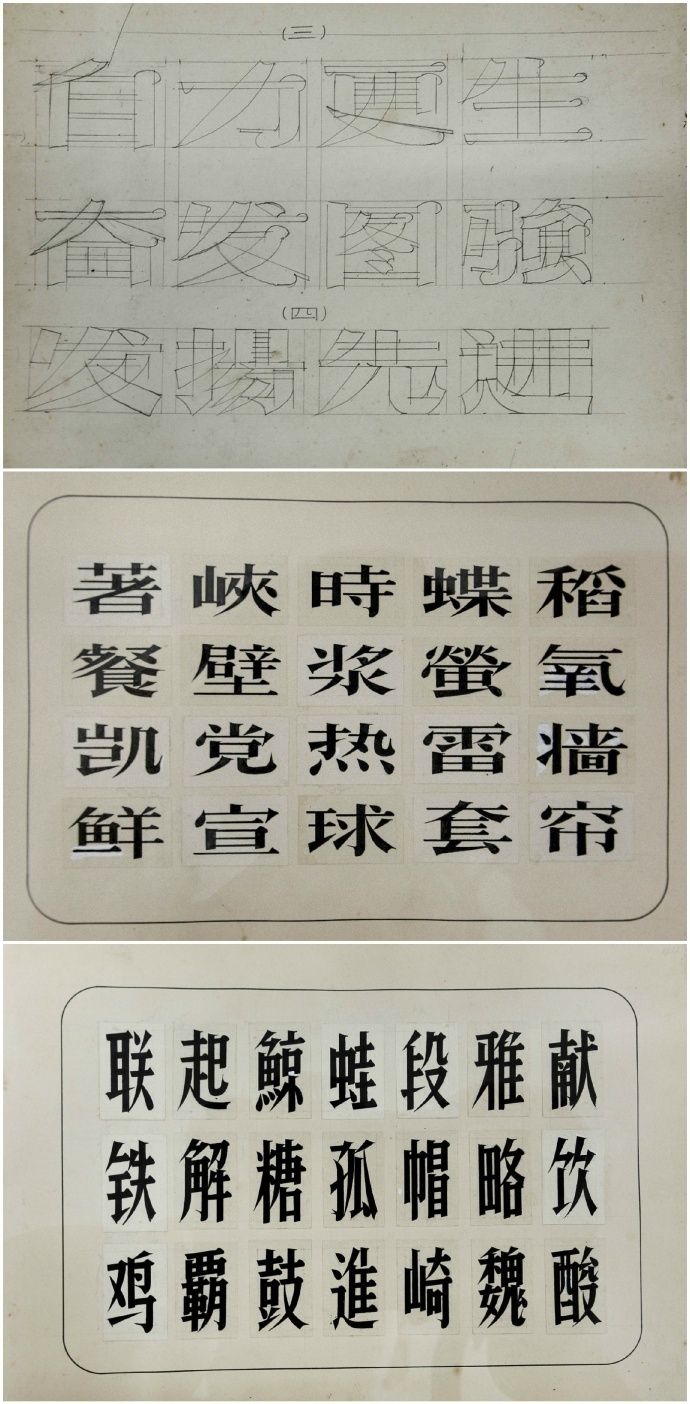 (三)
自力更生
奋发图強
(四)
发揚先进
著峽時蝶稻
餐壁浆螢氧
凯党热雷墙
鲜宣球套帘
联起鲸蛙段雅献
铁解糖孤帽略饮
鸡覇鼓進崎魏酸